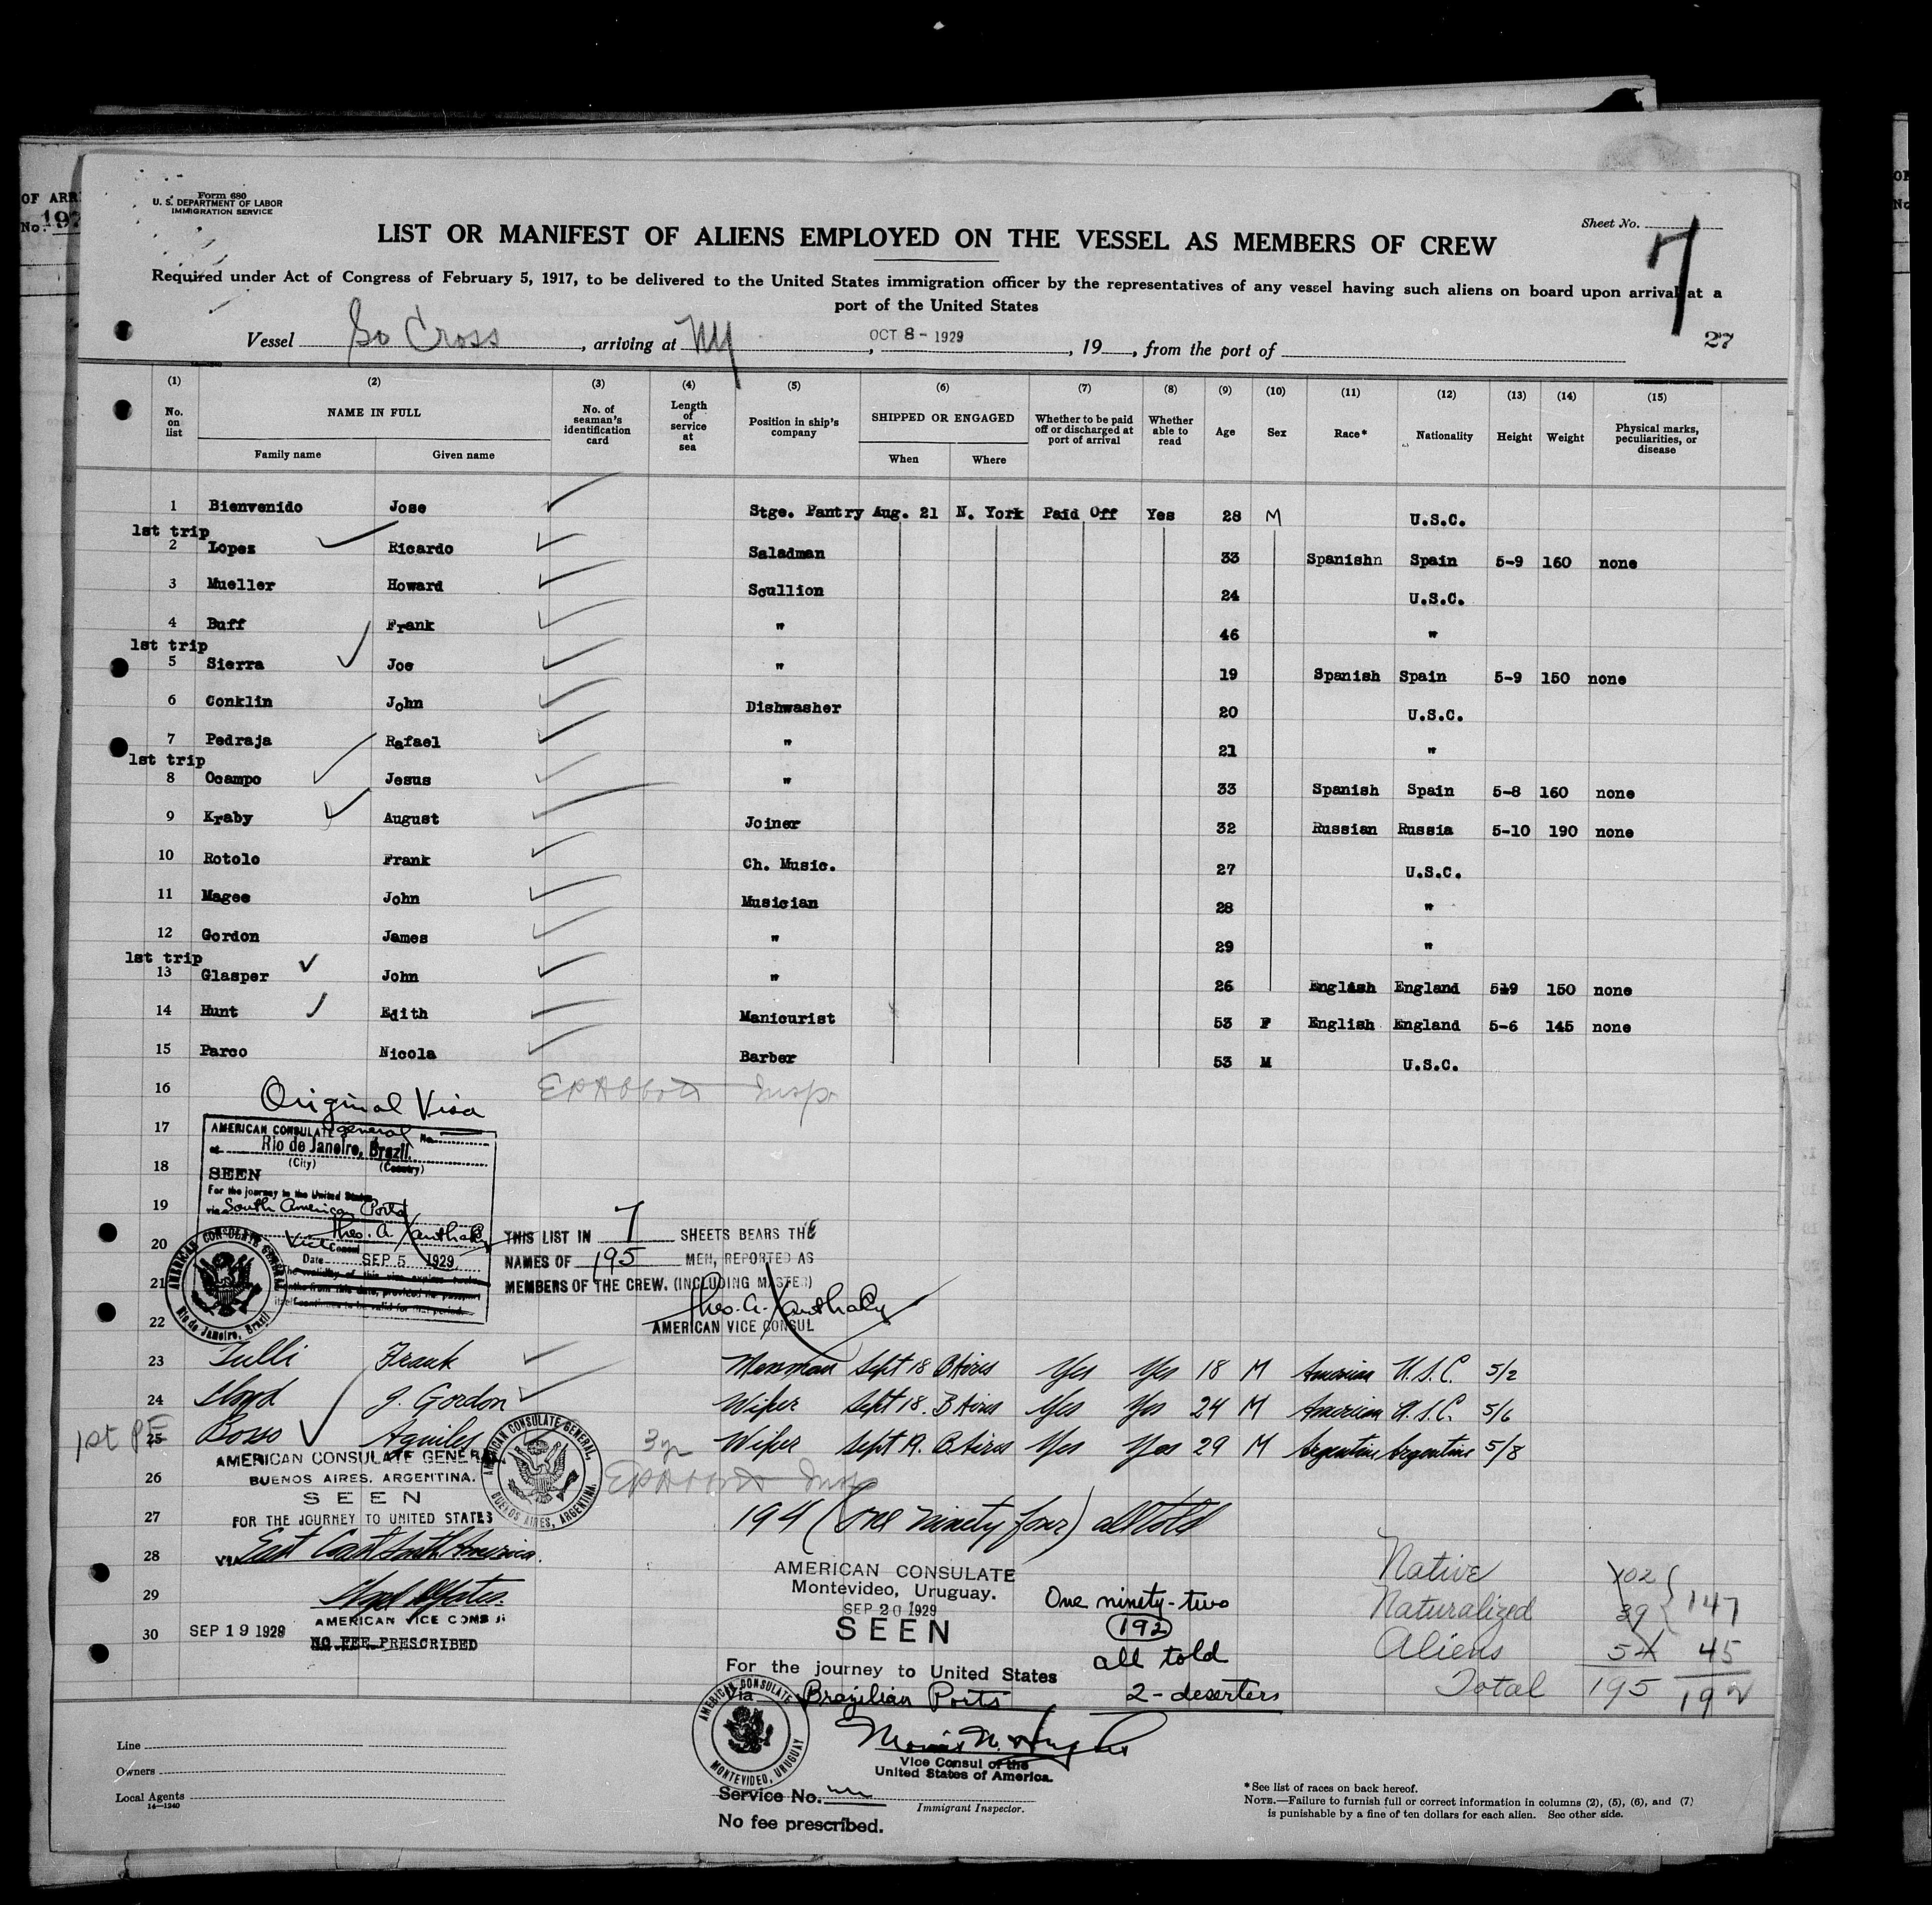 OF ARR
No. 197
Form 680
U. S. DEPARTMENT OF LABOR
IMMIGRATION SERVICE
Sheet No. 7
LIST OR MANIFEST OF ALIENS EMPLOYED ON THE VESSEL AS MEMBERS OF CREW
Required under Act of Congress of February 5, 1917, to be delivered to the United States immigration officer by the representatives of any vessel having such aliens on board upon arrival at a
port of the United States
Vessel So Cross, arriving at NY, OCT 8 - 1929, 19, from the port of
27
(1) (2) (3) (4) (5) (6) (7) (8) (9) (10) (11) (12) (13) (14) (15)
No. on list NAME IN FULL No. of seaman's identification card Length of service at sea Position in ship's company SHIPPED OR ENGAGED Whether to be paid off or discharged at port of arrival Whether able to read Age Sex Race* Nationality Height Weight Physical marks, peculiarities, or disease
Family name Given name When Where
1 Bienvenido Jose Stge. Pantry Aug. 21 N. York Paid Off Yes 28 M U.S.C.
1st trip
2 Lopez Ricardo Saladman 33 Spanishn Spain 5-9 160 none
3 Mueller Howard Scullion 24 U.S.C.
4 Buff Frank " 46 "
1st trip
5 Sierra Joe " 19 Spanish Spain 5-9 150 none
6 Conklin John Dishwasher 20 U.S.C.
7 Pedraja Rafael " 21 "
1st trip
8 Ocampo Jesus " 33 Spanish Spain 5-8 160 none
9 Kraby August Joiner 32 Russian Russia 5-10 190 none
10 Rotolo Frank Ch. Music. 27 U.S.C.
11 Magee John Musician 28 "
12 Gordon James " 29 "
1st trip
13 Glasper John " 26 English England 5-9 150 none
14 Hunt Edith Manicurist 53 F English England 5-6 145 none
15 Parco Nicola Barber 53 M U.S.C.
16 EPAbbott Insp.
Original Visa
17 AMERICAN CONSULATE general No.
at Rio de Janeiro, Brazil.
(City) (Country)
18 SEEN
For the journey to the United States
19 via South American Ports
Theo. A. Xanthaky
20 Vice Consul
Date SEP 5 1929
21 The validity of this visa expires twelve
months from this date, provided the passport
itself continues to be valid for that period.
22
AMERICAN CONSULATE GENERAL
Rio de Janeiro, Brazil
THIS LIST IN 7 SHEETS BEARS THE
NAMES OF 195 MEN, REPORTED AS
MEMBERS OF THE CREW. (INCLUDING MASTER)
Theo. A. Xanthaky
AMERICAN VICE CONSUL
23 Tulli Frank Messman Sept 18 BAires Yes Yes 18 M American U.S.C. 5/2
24 Lloyd J. Gordon Wiper Sept 18. B Aires Yes Yes 24 M American U.S.C. 5/6
25 Bosso Aquiles 3 yr Wiper Sept 19. B. Aires Yes Yes 29 M Argentine Argentine 5/8
AMERICAN CONSULATE GENERAL
26 BUENOS AIRES, ARGENTINA.
SEEN
27 FOR THE JOURNEY TO UNITED STATES
28 VIA East Coast South America.
29
AMERICAN VICE CONSUL
30 SEP 19 1929
NO FEE PRESCRIBED
AMERICAN CONSULATE GENERAL,
BUENOS AIRES, ARGENTINA.
EPAbbott Insp
194 (One ninety four) all told
AMERICAN CONSULATE
Montevideo, Uruguay.
SEP 20 1929
SEEN
For the journey to United States
Via Brazilian Ports
Vice Consul of the
United States of America.
AMERICAN CONSULATE
MONTEVIDEO, URUGUAY
Service No.
No fee prescribed.
One ninety-two
192
all told
2 - deserters
Native 102
Naturalized 39 147
Aliens 54 45
Total 195 192
Line
Owners
Local Agents
14—1240
Immigrant Inspector.
*See list of races on back hereof.
NOTE.—Failure to furnish full or correct information in columns (2), (5), (6), and (7)
is punishable by a fine of ten dollars for each alien. See other side.